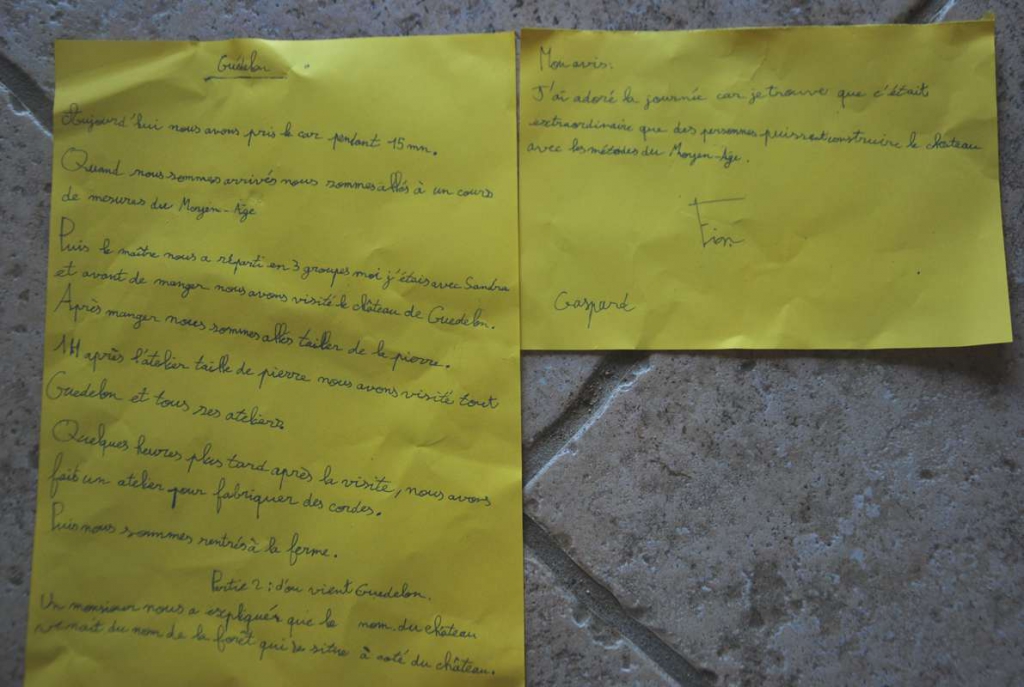 Guédelon
Aujourd'hui nous avons pris le car pentant 15mn.
Quand nous sommes arrivés nous sommes allés à un cours
de mesures du Moyen-Age
Puis le maître nous a réparti en 3 groupes moi j'étais avec Sandra
et avant de manger nous avons visité le château de Guedelon.
Après manger nous sommes allés tailler de la pierre.
1H après l'atelier taille de pierre nous avons visité tout
Guedelon et tous ses ateliers
Quelques heures plus tard après la visite, nous avons
fait un atelier pour fabriquer des cordes.
Puis nous sommes rentrés à la ferme.
Partie 2 : d'ou vient Guedelon.
Un monsieur nous a expliqués que le nom du château
venait du nom de la forêt qui se situe à coté du château.
Mon avis:
J'ai adoré la journée car je trouve que c'était
extraordinaire que des personnes puissent construire le château
avec les métodes du Moyen-Age.
Fin
Gaspard